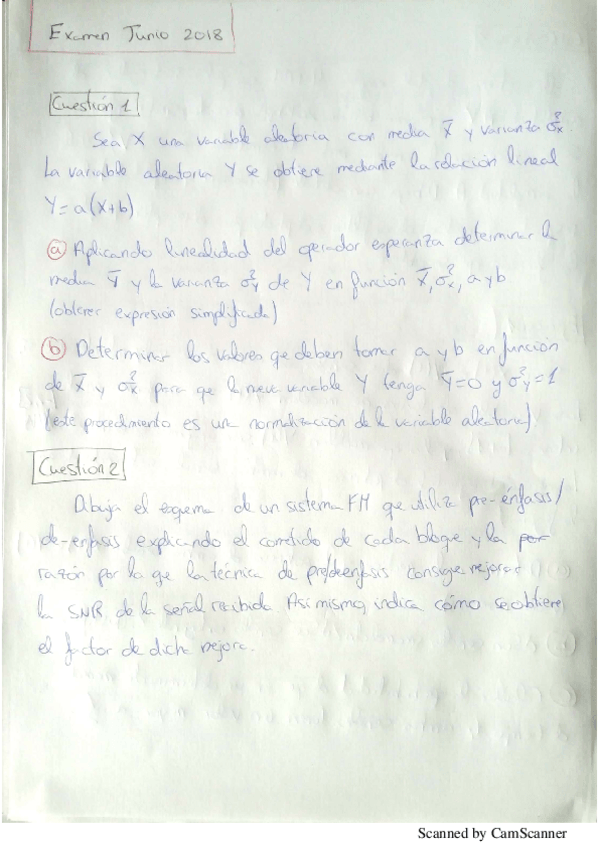 Examen Junio 2018
Cuestión 1
Sea X una variable aleatoria con media X̄ y varianza σ²x.
La variable aleatoria Y se obtiene mediante la relación lineal
Y=a(X+b)
(a) Aplicando linealidad del operador esperanza determinar la
media Ȳ y la varianza σ²y de Y en función X̄, σ²x, a y b
(obtener expresión simplificada)
(b) Determinar los valores qe deben tomar a y b en función
de X̄ y σ²x para qe la nueva variable Y tenga Ȳ=0 y σ²y=1
(este procedimiento es una normalización de la variable aleatoria).
Cuestión 2
Dibuja el esquema de un sistema FM qe utiliza pre-énfasis/
de-énfasis explicando el cometido de cada bloque y la por
razón por la qe la técnica de pre/deénfasis consigue mejorar
la SNR de la señal recibida. Asimismo, indica cómo se obtiene
el factor de dicha mejora.
Scanned by CamScanner